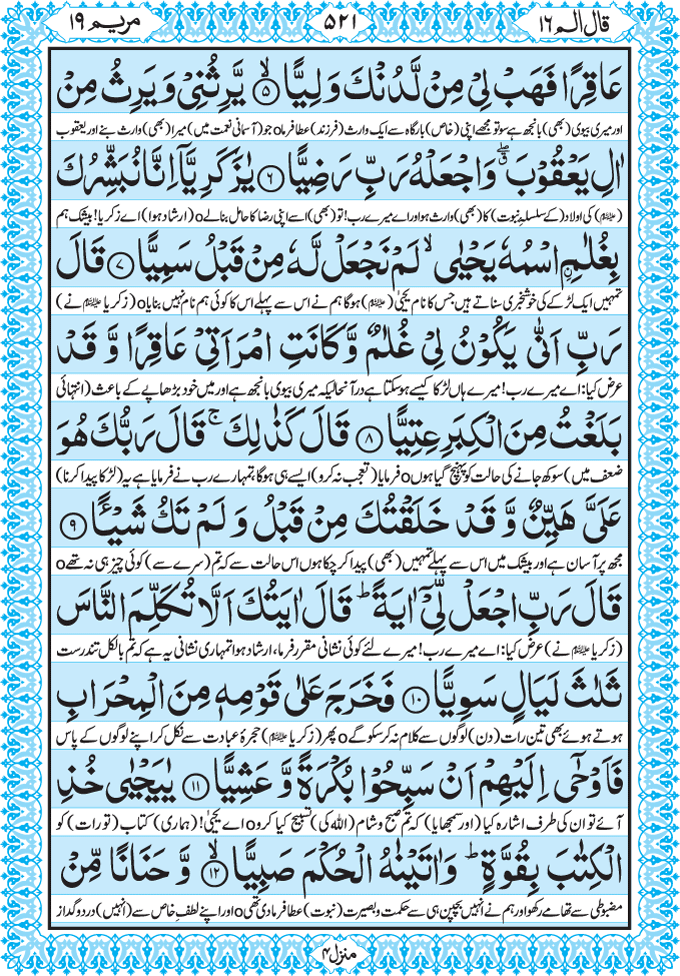 قال الم ١٦
٥٢١
مريم ١٩
عَاقِرًا فَهَبْ لِیْ مِنْ لَّدُنْكَ وَلِیًّا ۙ﴿۵﴾ یَّرِثُنِیْ وَ یَرِثُ مِنْ
اور میری بیوی (بھی) بانجھ ہے سو تو مجھے اپنی (خاص) بارگاہ سے ایک وارث (فرزند) عطا فرما o جو (آسمانی نعمت میں) میرا (بھی) وارث بنے اور یعقوب
اٰلِ یَعْقُوْبَ ۖۗ وَ اجْعَلْهُ رَبِّ رَضِیًّا ﴿۶﴾ یٰزَكَرِیَّاۤ اِنَّا نُبَشِّرُكَ
(علیہ السلام) کی اولاد (کے سلسلۂ نبوت) کا (بھی) وارث ہو اور اے میرے رب! تو (بھی) اسے اپنی رضا کا حامل بنا لے o (ارشاد ہوا) اے زکریا! بیشک ہم
بِغُلٰمِ ﹰاسْمُهٗ یَحْیٰی ۙ لَمْ نَجْعَلْ لَّهٗ مِنْ قَبْلُ سَمِیًّا ﴿۷﴾ قَالَ
تمہیں ایک لڑکے کی خوشخبری سناتے ہیں جس کا نام یحیٰی (علیہ السلام) ہوگا ہم نے اس سے پہلے اس کا کوئی ہم نام نہیں بنایا o (زکریا علیہ السلام نے)
رَبِّ اَنّٰی یَكُوْنُ لِیْ غُلٰمٌ وَّ كَانَتِ امْرَاَتِیْ عَاقِرًا وَّ قَدْ
عرض کیا: اے میرے رب! میرے ہاں لڑکا کیسے ہو سکتا ہے درآنحالیکہ میری بیوی بانجھ ہے اور میں خود بڑھاپے کے باعث (انتہائی
بَلَغْتُ مِنَ الْكِبَرِ عِتِیًّا ﴿۸﴾ قَالَ كَذٰلِكَ ۚ قَالَ رَبُّكَ هُوَ
ضعف میں) سوکھ جانے کی حالت کو پہنچ گیا ہوں o فرمایا (تعجب نہ کرو) ایسے ہی ہوگا، تمہارے رب نے فرمایا ہے یہ (لڑکا پیدا کرنا)
عَلَیَّ هَیِّنٌ وَّ قَدْ خَلَقْتُكَ مِنْ قَبْلُ وَ لَمْ تَكُ شَیْـًٔا ﴿۹﴾
مجھ پر آسان ہے اور بیشک میں اس سے پہلے تمہیں (بھی) پیدا کر چکا ہوں اس حالت سے کہ تم (سرے سے) کوئی چیز ہی نہ تھے o
قَالَ رَبِّ اجْعَلْ لِّیْۤ اٰیَةً ؕ قَالَ اٰیَتُكَ اَلَّا تُكَلِّمَ النَّاسَ
(زکریا علیہ السلام نے) عرض کیا: اے میرے رب! میرے لئے کوئی نشانی مقرر فرما، ارشاد ہوا تمہاری نشانی یہ ہے کہ تم بالکل تندرست
ثَلٰثَ لَیَالٍ سَوِیًّا ﴿۱۰﴾ فَخَرَجَ عَلٰی قَوْمِهٖ مِنَ الْمِحْرَابِ
ہوتے ہوئے بھی تین رات (دن) لوگوں سے کلام نہ کر سکو گے o پھر (زکریا علیہ السلام) حجرۂ عبادت سے نکل کر اپنے لوگوں کے پاس
فَاَوْحٰۤی اِلَیْهِمْ اَنْ سَبِّحُوْا بُكْرَةً وَّ عَشِیًّا ﴿۱۱﴾ یٰیَحْیٰی خُذِ
آئے تو ان کی طرف اشارہ کیا (اور سمجھایا) کہ تم صبح و شام (اللہ کی) تسبیح کیا کرو o اے یحیٰی! (ہماری) کتاب (تورات) کو
الْكِتٰبَ بِقُوَّةٍ ؕ وَ اٰتَیْنٰهُ الْحُكْمَ صَبِیًّا ۙ﴿۱۲﴾ وَّ حَنَانًا مِّنْ
مضبوطی سے تھامے رکھو اور ہم نے انہیں بچپن ہی سے حکمت و بصیرت (نبوت) عطا فرما دی تھی o اور اپنے لطفِ خاص سے (انہیں) درد و گداز
منزل ۴